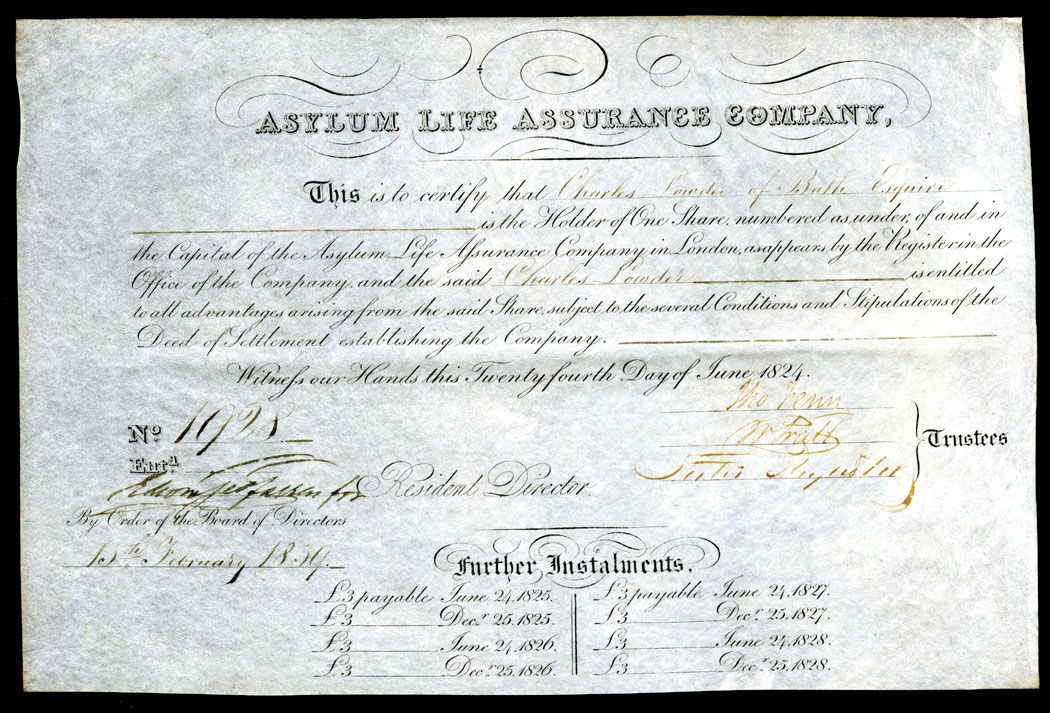 ASYLUM LIFE ASSURANCE COMPANY,
This is to certify that Charles Lowder of Bath Esquire
is the Holder of One Share, numbered as under, of and in
the Capital of the Asylum Life Assurance Company, in London, as appears by the Register in the
Office of the Company, and the said Charles Lowder is entitled
to all advantages arising from the said Share, subject to the several Conditions and Stipulations of the
Deed of Settlement establishing the Company.
Witness our Hands this Twenty fourth Day of June 1824.
Tho Fenn
No. 1928
W Pratt
Trustees
Entd.
Resident Director.
By Order of the Board of Directors
15th February 1839
Further Instalments.
£3 payable June 24, 1825. £3 payable June 24, 1827.
£3 Decr. 25, 1825. £3 Decr. 25, 1827.
£3 June 24, 1826. £3 June 24, 1828.
£3 Decr. 25, 1826. £3 Decr. 25, 1828.